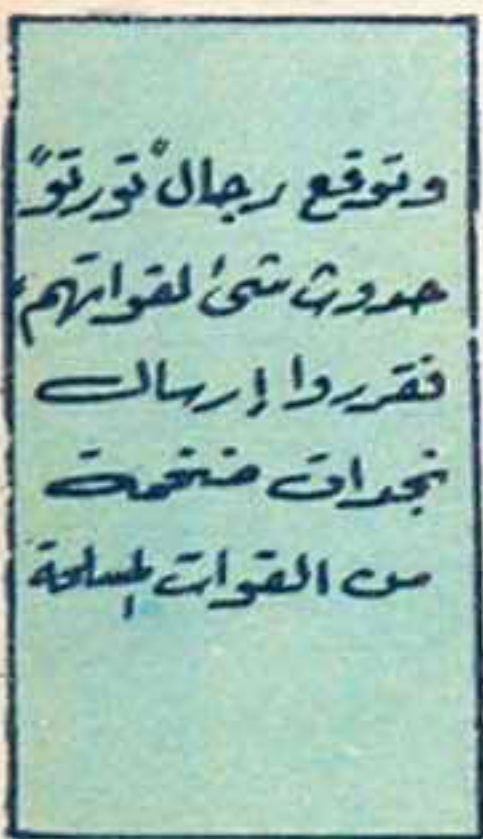 وتوقع رجال "تورتو"
حدوث شئ لقواتهم،
فقرروا إرسال
نجدات ضخمة
من القوات المسلحة